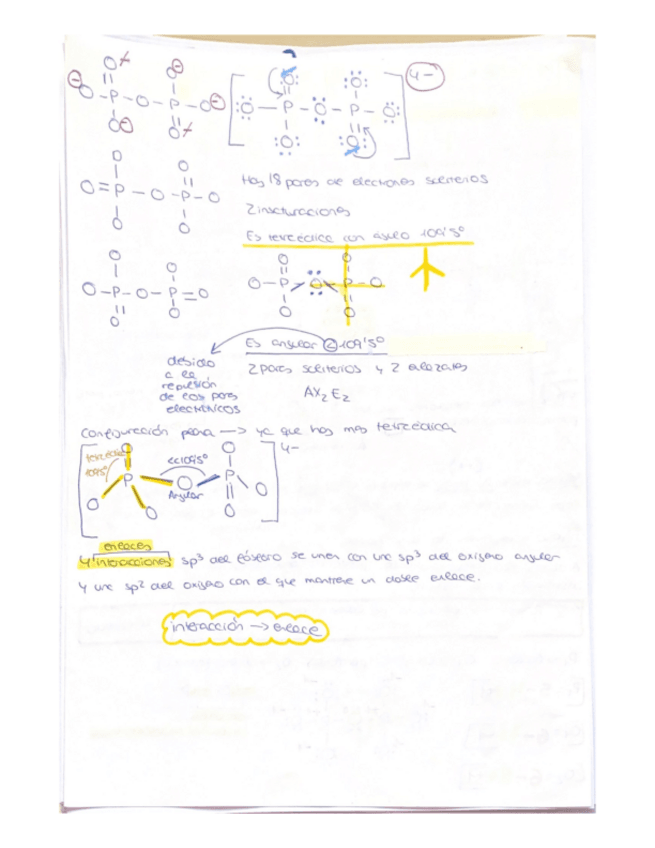 4-
Hay 18 pares de electrones solitarios
2 insaturaciones
Es tetraédrica con ángulo 109'5°
Es angular < 109'5°
debido
a la
repulsión
de los pares
electrónicos
2 pares solitarios y 2 enlazales
AX₂E₂
Configuración plana → ya que hay más tetraédrica
4-
tetraédrica
109'5°
<109'5°
Angular
enlaces
4 "interacciones" sp³ del fósforo se unen con una sp³ del oxígeno angular
y una sp² del oxígeno con el que mantiene un doble enlace.
interacción → enlace